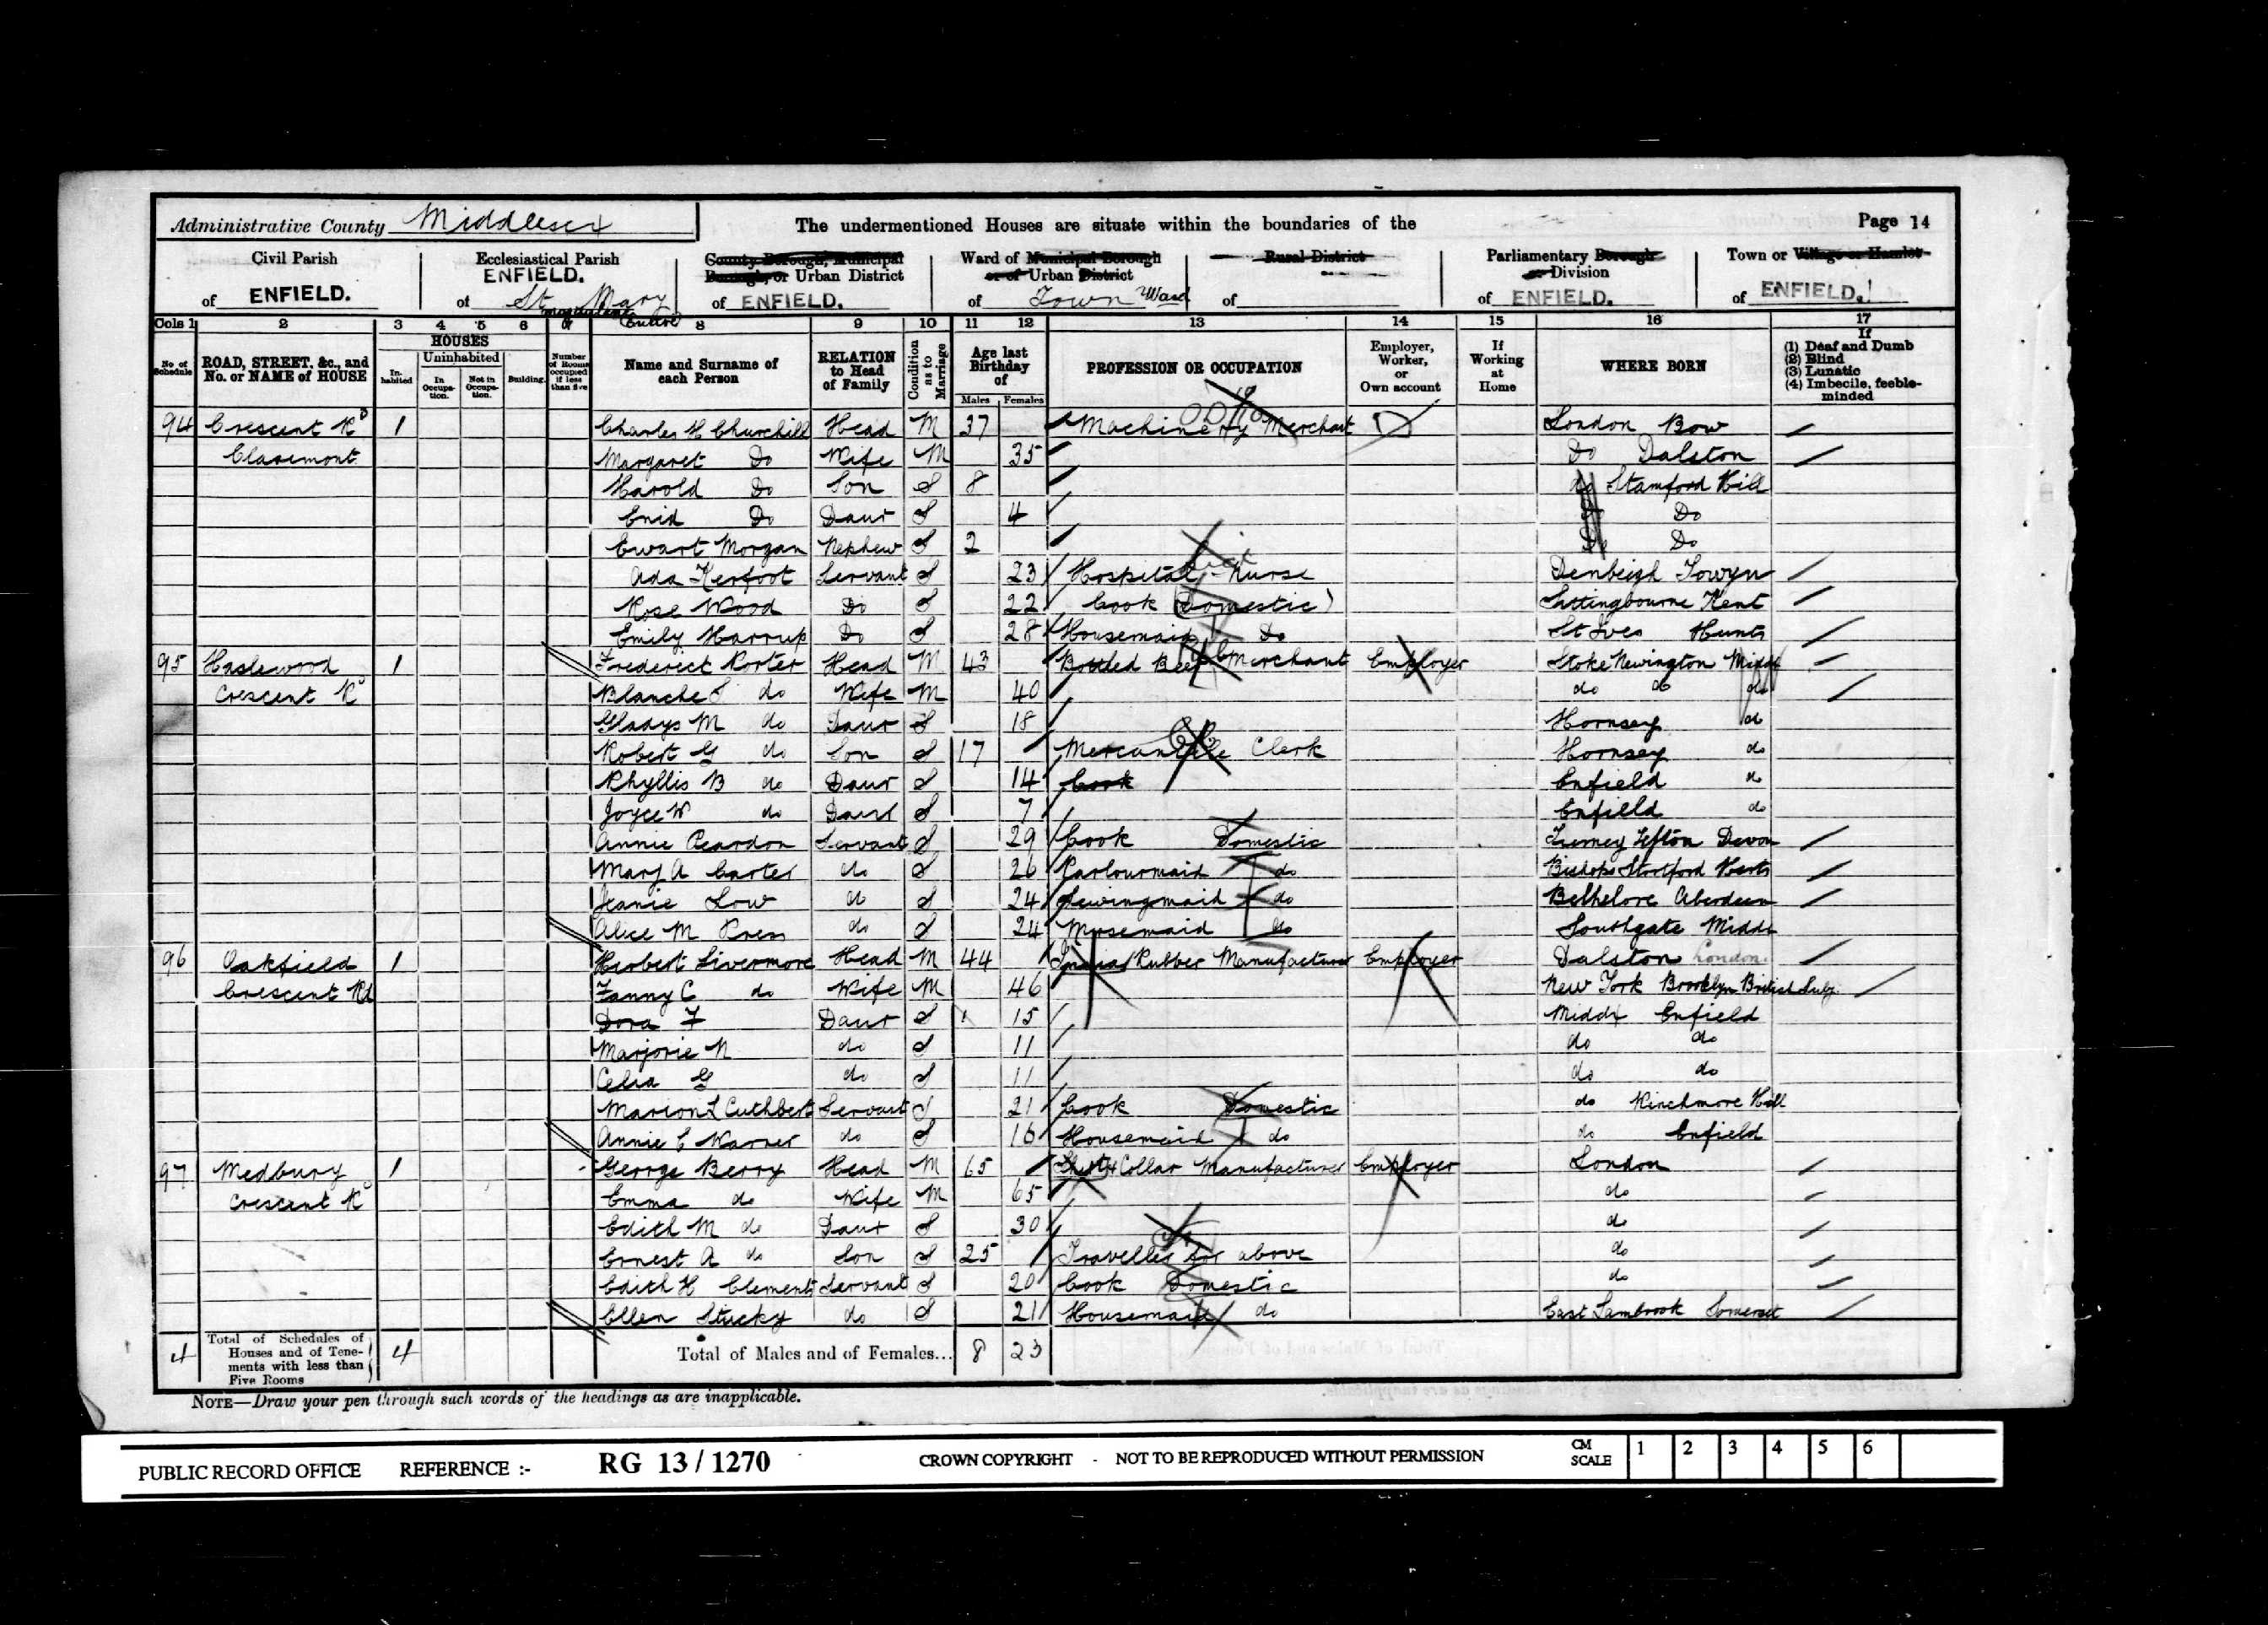 Administrative County Middlesex The undermentioned Houses are situate within the boundaries of the Page 14
Civil Parish of ENFIELD.
Ecclesiastical Parish ENFIELD. of St Mary Magdalene (Entire)
County Borough, Municipal Borough, or Urban District of ENFIELD.
Ward of Municipal Borough or of Urban District of Town Ward
Rural District of
Parliamentary Borough or Division of ENFIELD.
Town or Village or Hamlet of ENFIELD.
Cols 1 2 3 4 5 6 7 8 9 10 11 12 13 14 15 16 17
No of Schedule
ROAD, STREET, &c., and No. or NAME of HOUSE
HOUSES
Inhabited
Uninhabited
In Occupation.
Not in Occupation.
Building.
Number of Rooms occupied if less than five
Name and Surname of each Person
RELATION to Head of Family
Condition as to Marriage
Age last Birthday of
Males Females
PROFESSION OR OCCUPATION
Employer, Worker, or Own account
If Working at Home
WHERE BORN
If (1) Deaf and Dumb (2) Blind (3) Lunatic (4) Imbecile, feeble-minded
94 Crescent Rd 1 Charles H Churchill Head M 37 Machinery Merchant London Bow
Claremont Margaret Do Wife M 35 Do Dalston
Harold Do Son S 8 do Stamford Hill
Enid Do Daur S 4 Do Do
Ewart Morgan Nephew S 2 Do Do
Ada Kerfoot Servant S 23 Hospital Nurse Denbeigh Towyn
Rose Wood Do S 22 Cook (Domestic) Sittingbourne Kent
Emily Harrup Do S 28 Housemaid Do St Ives Hunts
95 Haslewood 1 Frederick Porter Head M 43 Bottled Beer Merchant Employer Stoke Newington Middx
Crescent Rd Blanche S do Wife M 40 do do do
Gladys M do Daur S 18 Hornsey do
Robert G do Son S 17 Mercantile Clerk Hornsey do
Phyllis B do Daur S 14 Cook Enfield do
Joyce W do Daur S 7 Enfield do
Annie Peardon Servant S 29 Cook Domestic Devon
Mary A Carter do S 26 Parlourmaid do Bishops Stortford Herts
Jeanie Low do S 24 Sewingmaid do Bethelore Aberdeen
Alice M Press do S 24 Nursemaid do Southgate Middx
96 Oakfield 1 Herbert Livermore Head M 44 India Rubber Manufacturer Employer Dalston London
Crescent Rd Fanny C do Wife M 46 New York Brooklyn British Subj.
Dora F Daur S 15 Middx Enfield
Marjorie N do S 11 do do
Celia G do S 11 do do
Marion L Cuthbert Servant S 21 Cook Domestic do Winchmore Hill
Annie E Warner do S 16 Housemaid do do Enfield
97 Medbury 1 George Berry Head M 65 Shirt & Collar Manufacturer Employer London
Crescent Rd Emma do Wife M 65 do
Edith M do Daur S 30 do
Ernest A do Son S 25 Traveller for above do
Edith H Clements Servant S 20 Cook Domestic do
Ellen Stucky do S 21 Housemaid do East Lambrook Somerset
4 Total of Schedules of Houses and of Tenements with less than Five Rooms 4 Total of Males and of Females... 8 23
NOTE—Draw your pen through such words of the headings as are inapplicable.
PUBLIC RECORD OFFICE REFERENCE :- RG 13 / 1270 CROWN COPYRIGHT - NOT TO BE REPRODUCED WITHOUT PERMISSION CM SCALE 1 2 3 4 5 6